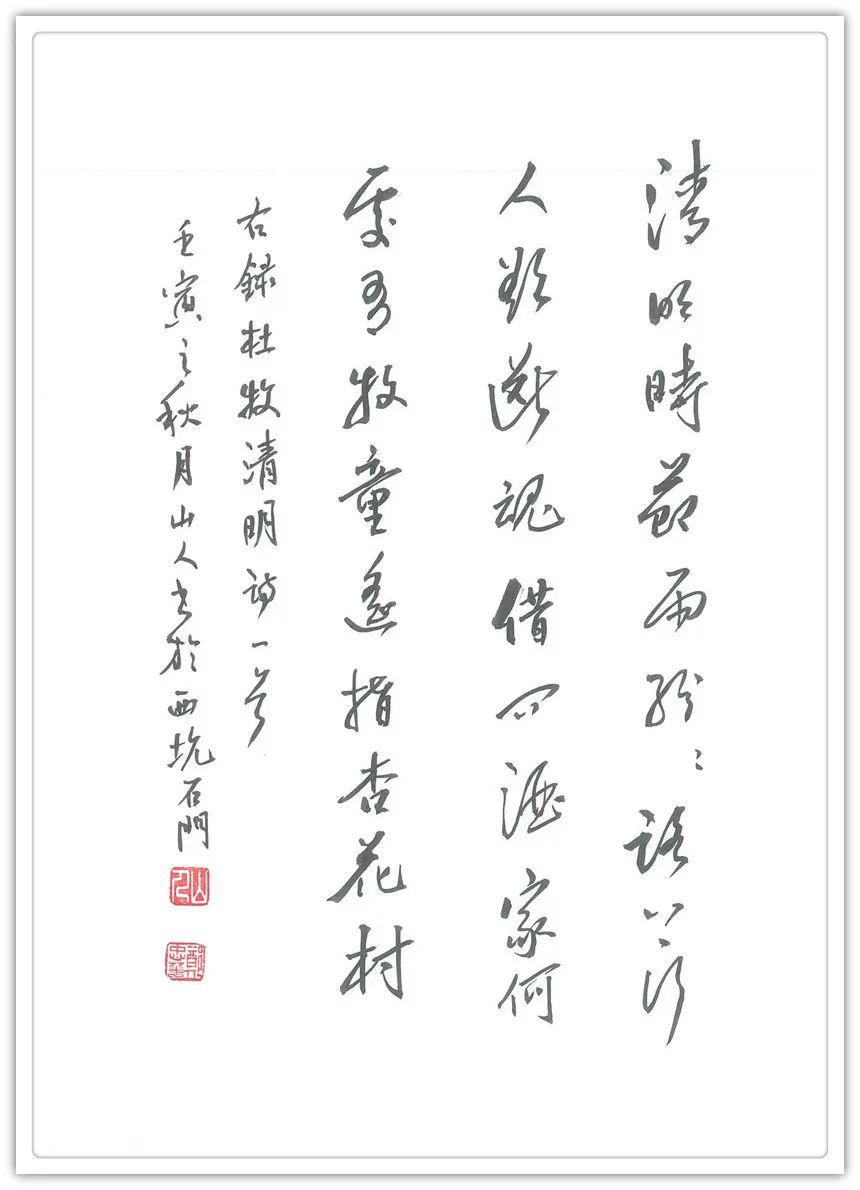 清明時節雨紛〻路上行
人欲断魂借问酒家何
處有牧童遥指杏花村
右録杜牧清明诗一首
壬寅之秋月山人书於西坑石門
山人